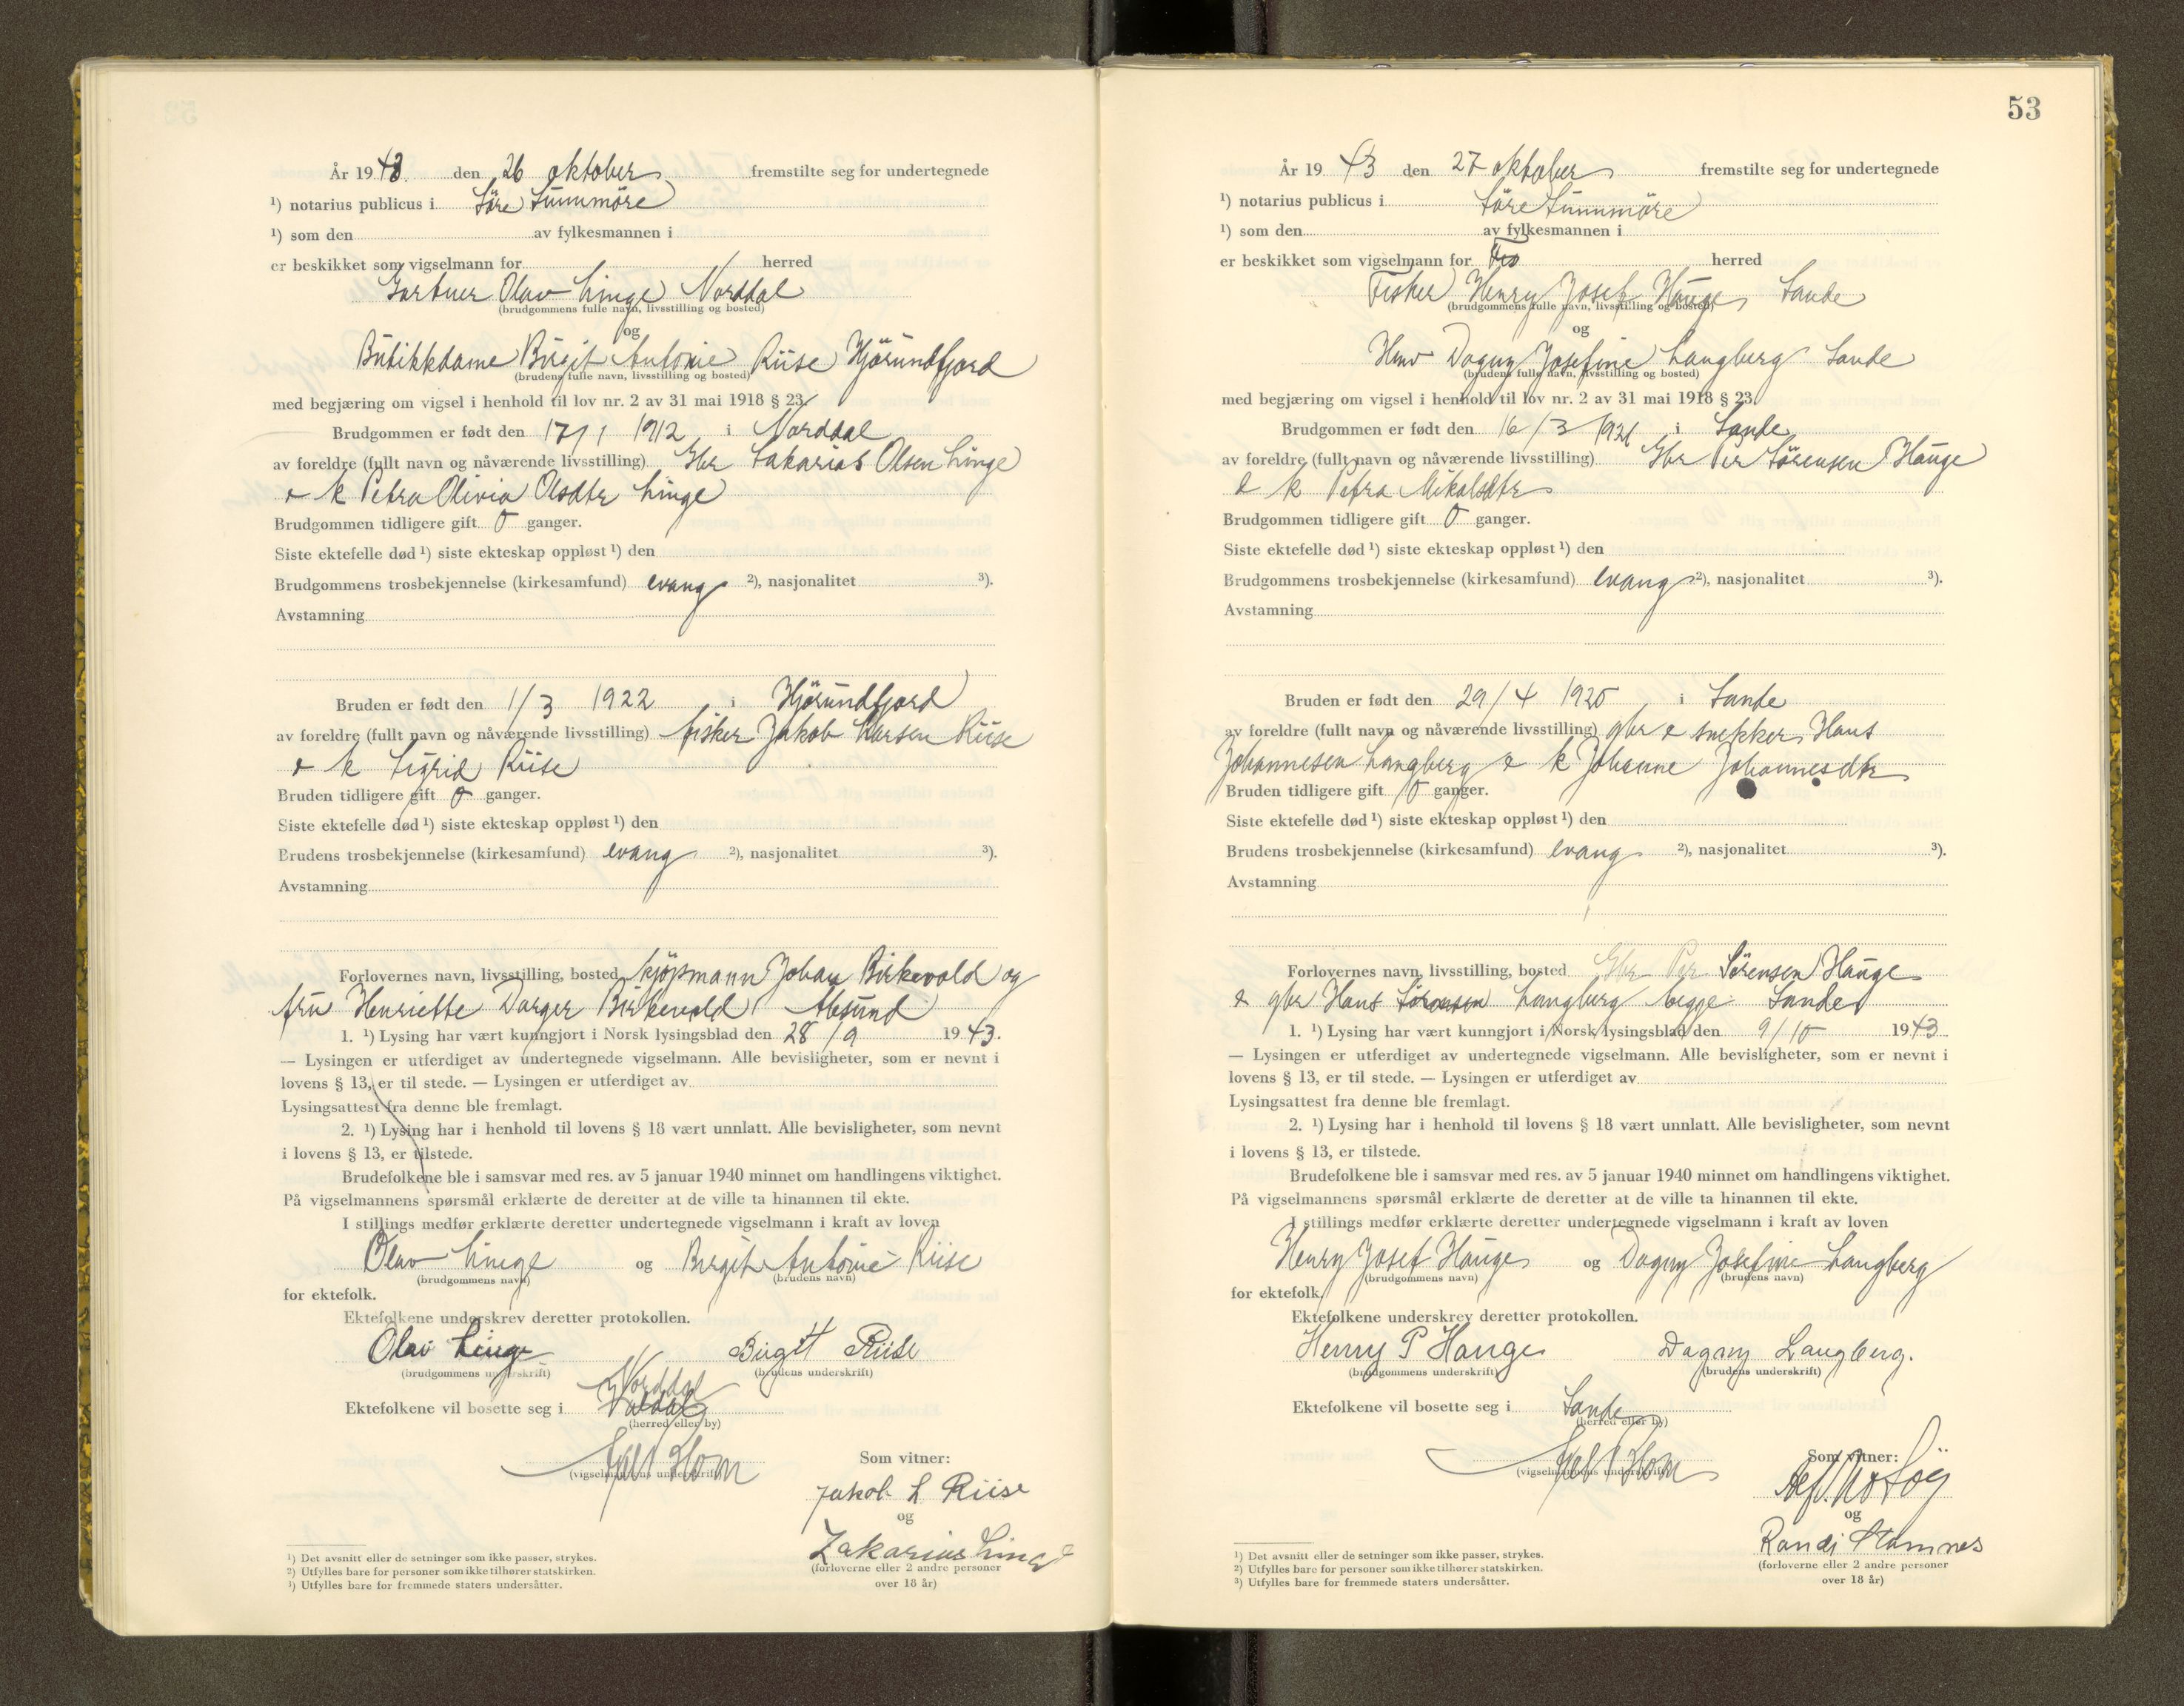 År 1943. den 26 oktober fremstilte seg for undertegnede
¹) notarius publicus i Söre Sunnmöre
¹) som den av fylkesmannen i
er beskikket som vigselmann for herred
Gartner Olav Linge Norddal
(brudgommens fulle navn, livsstilling og bosted)
og
Butikkdame Birgit Antonie Riise Hjörundfjord
(brudens fulle navn, livsstilling og bosted)
med begjæring om vigsel i henhold til lov nr. 2 av 31 mai 1918 § 23.
Brudgommen er født den 17/1 1912 i Norddal
av foreldre (fullt navn og nåværende livsstilling) Gbr Sakarias Olsen Linge
& k Petra Olivia Olsdtr Linge
Brudgommen tidligere gift 0 ganger.
Siste ektefelle død ¹) siste ekteskap oppløst ¹) den
Brudgommens trosbekjennelse (kirkesamfund) evang ²), nasjonalitet ³).
Avstamning
Bruden er født den 1/3 1922 i Hjörundfjord
av foreldre (fullt navn og nåværende livsstilling) fisker Jakob Larsen Riise
& k Sigrid Riise
Bruden tidligere gift 0 ganger.
Siste ektefelle død ¹) siste ekteskap oppløst ¹) den
Brudens trosbekjennelse (kirkesamfund) evang ²), nasjonalitet ³).
Avstamning
Forlovernes navn, livsstilling, bosted kjöpmann Johan Birkevold og
fru Henriette Birkevold Ålesund
1. ¹) Lysing har vært kunngjort i Norsk lysingsblad den 28/9 1943.
— Lysingen er utferdiget av undertegnede vigselmann. Alle bevisligheter, som er nevnt i
lovens § 13, er til stede. — Lysingen er utferdiget av
Lysingsattest fra denne ble fremlagt.
2. ¹) Lysing har i henhold til lovens § 18 vært unnlatt. Alle bevisligheter, som nevnt
i lovens § 13, er tilstede.
Brudefolkene ble i samsvar med res. av 5 januar 1940 minnet om handlingens viktighet.
På vigselmannens spørsmål erklærte de deretter at de ville ta hinannen til ekte.
I stillings medfør erklærte deretter undertegnede vigselmann i kraft av loven
Olav Linge og Birgit Antonie Riise
(brudgommens navn) (brudens navn)
for ektefolk.
Ektefolkene underskrev deretter protokollen.
Olav Linge Birgit Riise
(brudgommens underskrift) (brudens underskrift)
Norddal
Ektefolkene vil bosette seg i Valdal
(herred eller by)
(vigselmannens underskrift)
Som vitner:
Jakob L Riise
og
Zakarias Linge
(forloverne eller 2 andre personer
over 18 år)
¹) Det avsnitt eller de setninger som ikke passer, strykes.
²) Utfylles bare for personer som ikke tilhører statskirken.
³) Utfylles bare for fremmede staters undersåtter.
53
År 1943 den 27 oktober fremstilte seg for undertegnede
¹) notarius publicus i Söre Sunnmöre
¹) som den av fylkesmannen i
er beskikket som vigselmann for herred
Fisker Henry Josef Hauge Sande
(brudgommens fulle navn, livsstilling og bosted)
og
Dagny Josefine Langberg Sande
(brudens fulle navn, livsstilling og bosted)
med begjæring om vigsel i henhold til lov nr. 2 av 31 mai 1918 § 23.
Brudgommen er født den 16/3 1921 i Sande
av foreldre (fullt navn og nåværende livsstilling) Gbr Per Sörensen Hauge
& k Petra Mikalsdtr
Brudgommen tidligere gift 0 ganger.
Siste ektefelle død ¹) siste ekteskap oppløst ¹) den
Brudgommens trosbekjennelse (kirkesamfund) evang ²), nasjonalitet ³).
Avstamning
Bruden er født den 29/4 1920 i Sande
av foreldre (fullt navn og nåværende livsstilling) gbr & snekker Hans
Johannesen Langberg & k Johanne Johannesdtr
Bruden tidligere gift 0 ganger.
Siste ektefelle død ¹) siste ekteskap oppløst ¹) den
Brudens trosbekjennelse (kirkesamfund) evang ²), nasjonalitet ³).
Avstamning
Forlovernes navn, livsstilling, bosted Gbr Per Sörensen Hauge
& gbr Hans Sörensen Langberg begge Sande
1. ¹) Lysing har vært kunngjort i Norsk lysingsblad den 9/10 1943
— Lysingen er utferdiget av undertegnede vigselmann. Alle bevisligheter, som er nevnt i
lovens § 13, er til stede. — Lysingen er utferdiget av
Lysingsattest fra denne ble fremlagt.
2. ¹) Lysing har i henhold til lovens § 18 vært unnlatt. Alle bevisligheter, som nevnt
i lovens § 13, er tilstede.
Brudefolkene ble i samsvar med res. av 5 januar 1940 minnet om handlingens viktighet.
På vigselmannens spørsmål erklærte de deretter at de ville ta hinannen til ekte.
I stillings medfør erklærte deretter undertegnede vigselmann i kraft av loven
Henry Josef Hauge og Dagny Josefine Langberg
(brudgommens navn) (brudens navn)
for ektefolk.
Ektefolkene underskrev deretter protokollen.
Henry P Hauge Dagny Langberg.
(brudgommens underskrift) (brudens underskrift)
Ektefolkene vil bosette seg i Sande
(herred eller by)
(vigselmannens underskrift)
Som vitner:
og
Randi Stamnes
(forloverne eller 2 andre personer
over 18 år)
¹) Det avsnitt eller de setninger som ikke passer, strykes.
²) Utfylles bare for personer som ikke tilhører statskirken.
³) Utfylles bare for fremmede staters undersåtter.